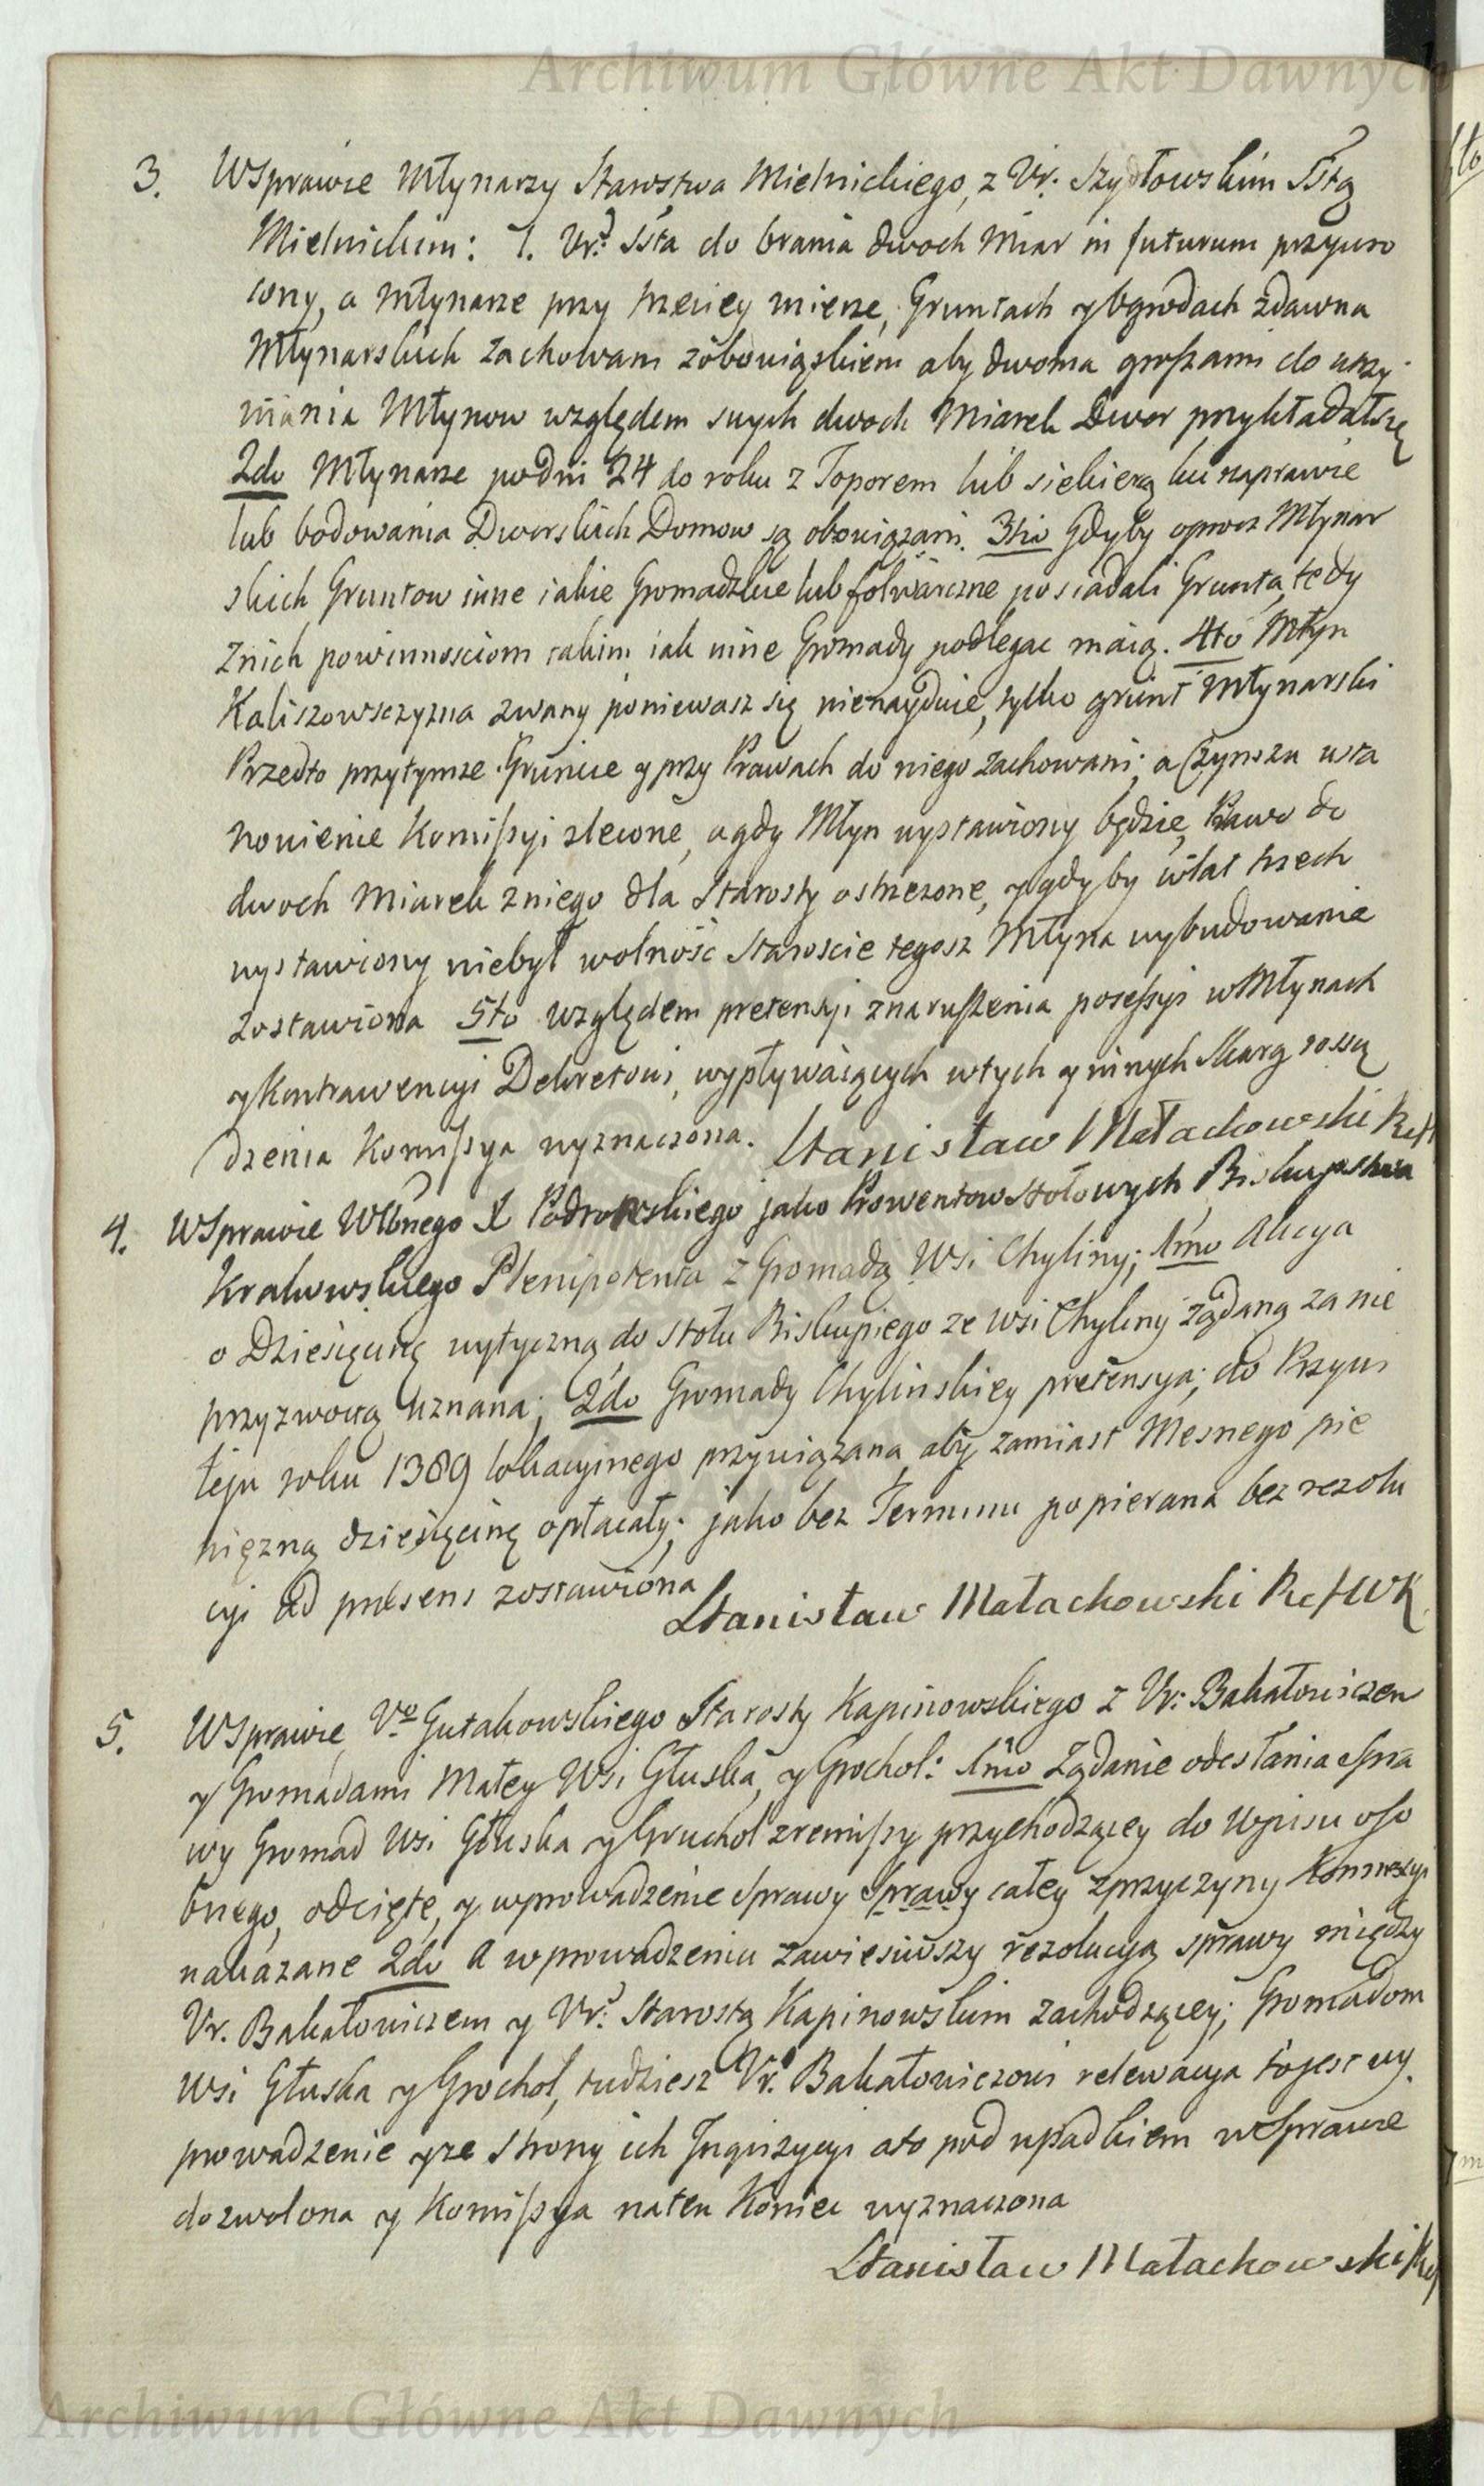 Archiwum Główne Akt Dawnych
3. WSprawie Młynarzy Starostwa Mielnickiego, z Ur: Szydłowskim Sstą
Mielnickim: 1. Ur: Ssta do brania dwoch Miar in futurum przywro
cony, a Młynarze przy trzeciey mierze, Gruntach y ogrodach zdawna
Młynarskich zachowani zobowiązkiem aby dwoma groszami do utrzy
mania Młynow względem swych dwoch Miarek Dwor przykładał się
2do Młynarze po dni 24 do roku z Toporem lub siekierą ku naprawie
lub bodowania Dworskich Domow są obowiązani. 3tio Gdyby oprocz Młynar
skich Gruntow inne iakie Gromadzkie lub folwarczne posiadali Grunta, tedy
Znich powinnosciom takim iak inne Gromady podlegac maią. 4to Młyn
Kaliszowszczyzna zwany poniewasz się nienayduie, tylko grunt Młynarski
Przedto przytymze Gruncie y przy Prawach do niego zachowani; a Czynszu usta
nowienie Komissyi zlecone, a gdy Młyn wystawiony będzie, Prawo do
dwoch Miarek zniego dla Starosty ostrzezone, y gdyby wlat trzech
wystawiony niebył wolność Staroscie tegosz Młyna wybudowanie
zostawiona 5to względem pretensyi znaruszenia possessyi w Młynach
y Kontrawencyi Dekretowi, wypływaiących wtych y innych Skarg rossą
dzenia Komissya wyznaczona. Stanisław Małachowski Ref
4. WSprawie Wlbnego X Podroskiego jako Prowentow stołowych Biskupstwa
Krakowskiego Plenipotenta z Gromadą Wsi Chyliny; 1mo Akcya
o Dziesięcinę wytyczną do stołu Biskupiego ze wsi Chyliny żądaną za nie
przyzwoitą uznana; 2do Gromady Chylinskiey pretensya; do Przywi
leju roku 1389 lokacyinego przywiązana aby zamiast Mesnego pie
niężną dziesięcinę opłacały; jako bez Terminu popierana bez rezolu
cyi ad praesens zostawiona
Stanisław Małachowski Ref WK
5. WSprawie Uo Gutakowskiego Starosty Kapinowskiego z Ur: Bakałowiczem
y Gromadami Małey Wsi Głuska, y Grochol: 1mo Żądanie odesłania Spra
wy Gromad wsi Głuska y Gruchol zremissy przychodzącey do wpisu oso
bnego, odcięte, y wprowadzenie Sprawy Sprawy całey zprzyczyny Konnexyi
nakazane 2do A w prowadzeniu zawiesiwszy rezolucyą sprawy między
Ur. Bakałowiczem y Ur: Starostą Kapinowskim zachodzącey; Gromadom
wsi Głuska y Grochol, tudziesz Ur. Bakałowiczowi relewacya to jest wy
prowadzenie yze Strony ich Inquizycyi ato pod upadkiem wSprawie
dozwolona y Komissya naten Koniec wyznaczona
Stanisław Małachowski Ref
Archiwum Główne Akt Dawnych